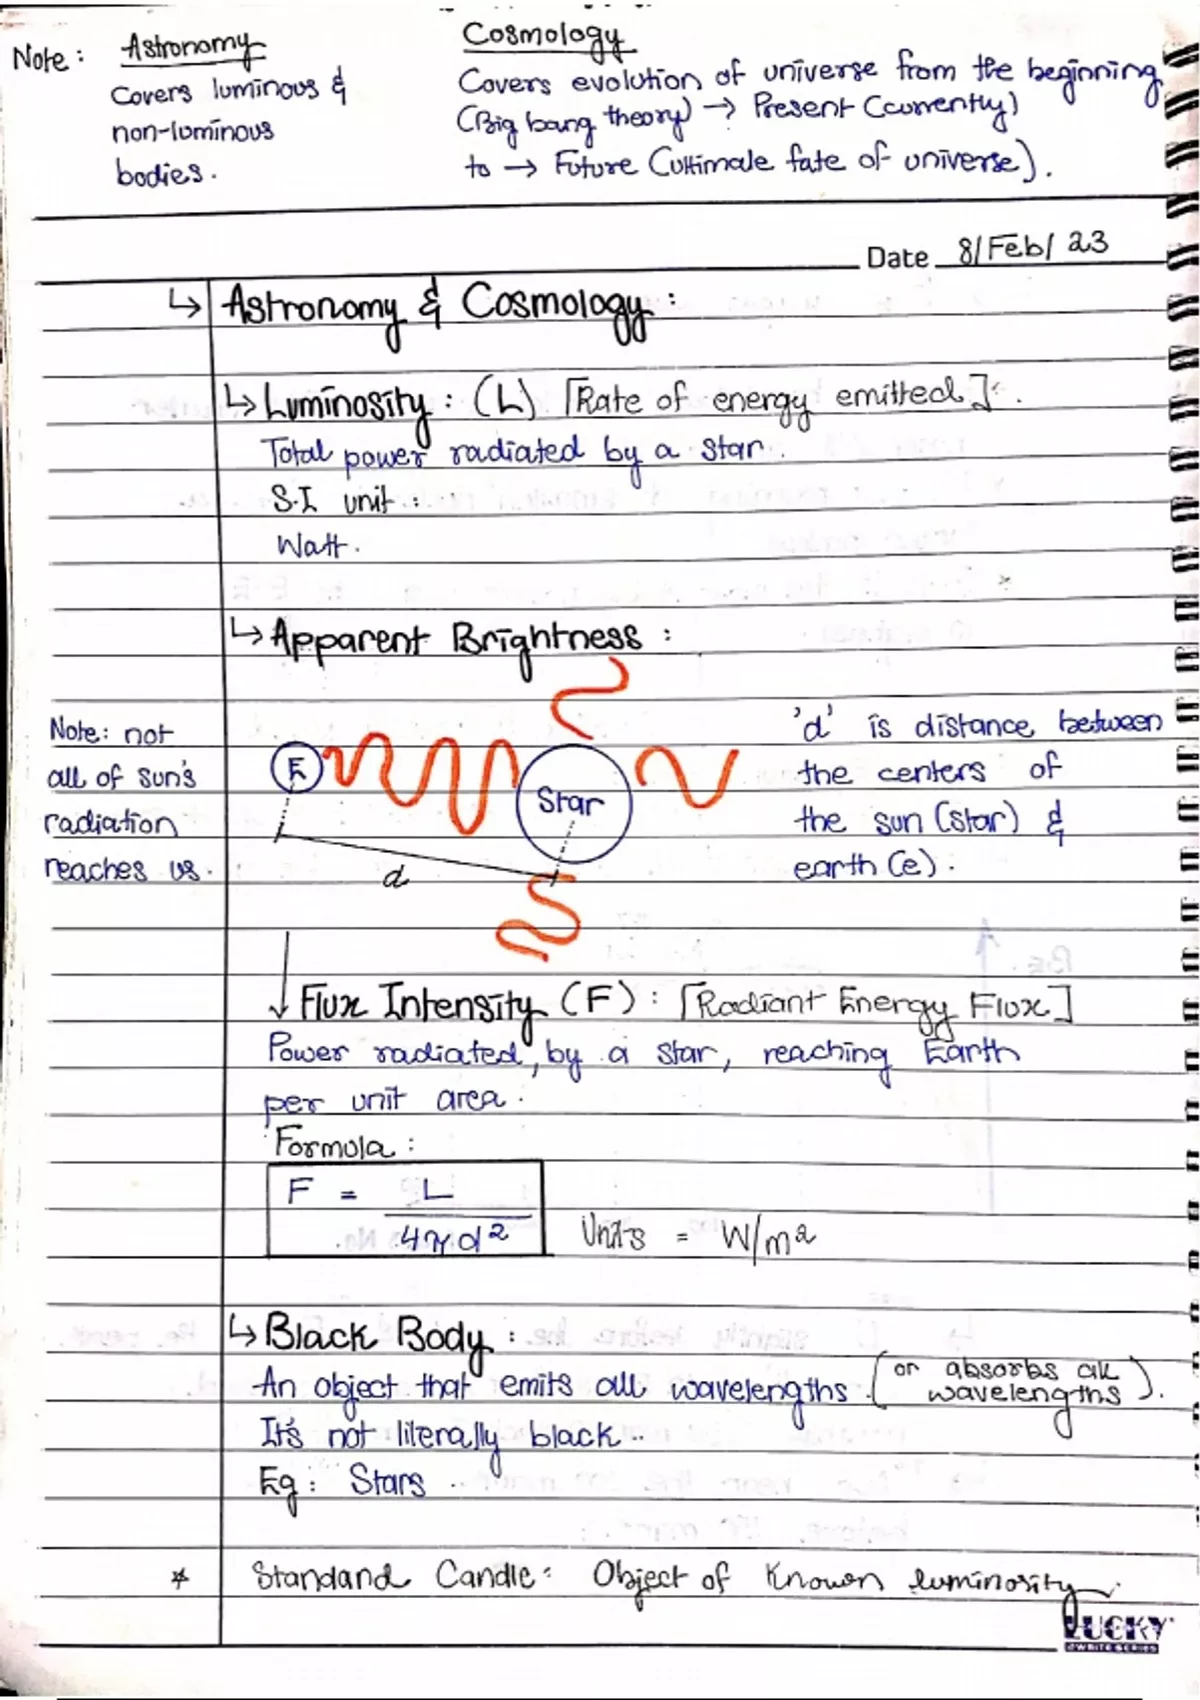 Note: Astronomy
Covers luminous &
non-luminous
bodies.
Cosmology
Covers evolution of universe from the beginning
(Big bang theory) → Present (currently)
to → Future (ultimate fate of universe).
Date 8/Feb/23
↳ Astronomy & Cosmology:
↳ Luminosity: (L) [Rate of energy emitted].
Total power radiated by a star.
S.I unit:
Watt.
↳ Apparent Brightness:
Note: not
all of sun's
radiation
reaches us.
E
Star
d
'd' is distance between
the centers of
the sun (star) &
earth (e).
↓ Flux Intensity (F): [Radiant Energy Flux]
Power radiated, by a star, reaching Earth
per unit area.
Formula:
F = L / 4πd² Units = W/m²
↳ Black Body:
An object that emits all wavelengths (or absorbs all wavelengths).
It's not literally black.
Eg: Stars
* Standard Candle: Object of known luminosity.
LUCKY